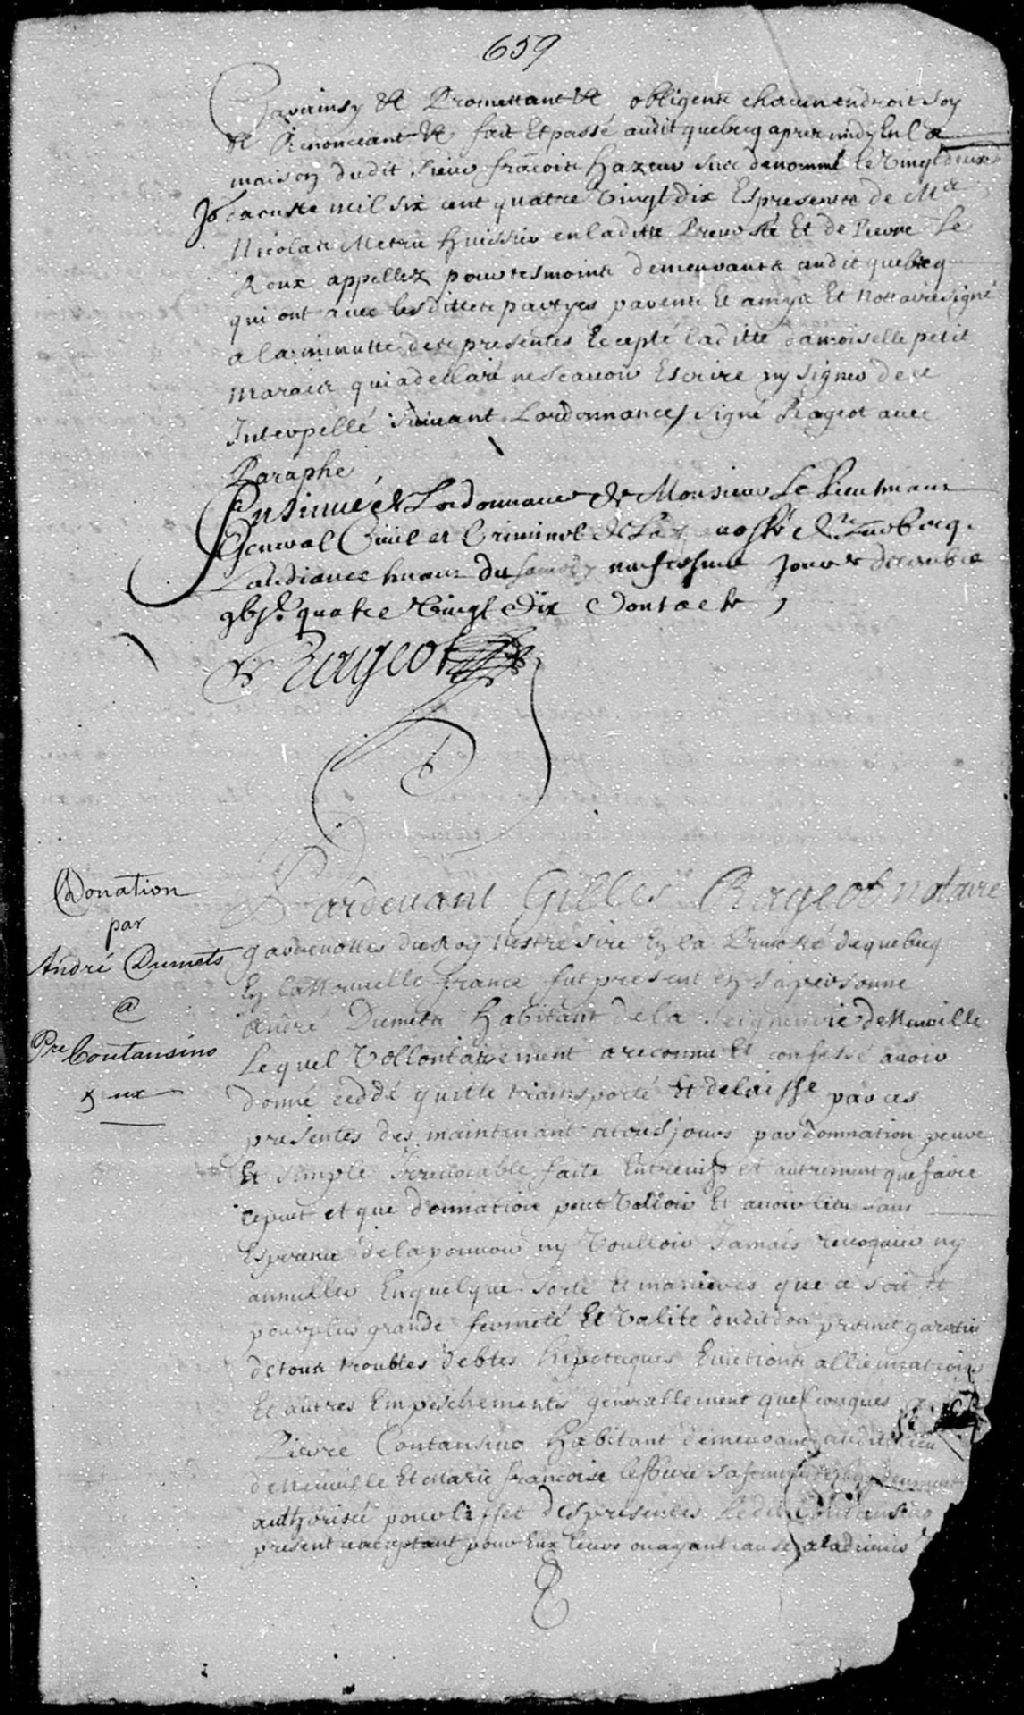 659
Car ainsy &c Promettant &c obligent chacun endroit soy
&c Renonceant &c fait et passé audit quebecq apres midy En la
maison dudit sieur françois hazeur sus denommé le vingt deux
Jo.r mil six cent quatre vingt dix Es presence de Me
Nicolas Metru huissier en laditte Prevosté Et de Pierre Le
Roux appellez pour tesmoins demeurants audit quebecq
qui ont avec lesdittes partyes parents et amys Et nottaire signé
a la minutte des presentes Excepté laditte damoiselle petit
marais qui a declaré ne scavoir Escrire ny signer de ce
Interpellé suivant Lordonnance / signé Rageot avec
Paraphe
Ensinué de Lordonnance de Monsieur Le Lieutenant
General Civil et Criminel de La Prevosté de Quebecq
Laudiance tenant du samedy neufiesme Jour de decembre
gbjc quatre vingt dix Dont acte
Rageot
Donation
par
André Dumets
@
Pre Coutansino
& ux
Pardevant Gilles Rageot notaire
gardenottes du Roy nostre sire En la Prevosté de quebecq
En la Nouvelle france fut present en sa personne
André Dumets habitant de la seigneurie de Neuville
Lequel vollontairement a reconnu Et confessé avoir
donné ceddé quitté transporté Et delaissé par ces
presentes des maintenant a tousjours par donnation pure
Et simple Irrevocable faite Entrevifs et autrement que faire
ce peut et que donnation peut valloir Et avoir lieu sans
Esperance de la pouvoir ny voulloir Jamais revoquer ny
annuller En quelque sorte et manieres que ce soit Et
pour plus grande fermeté Et valité dudit don promet garantir
de tous troubles debtes hipotecques Evictions alliennations
Et autres Empeschements generallement quelconques
Pierre Coutansino habitant demeurant audit lieu
de Neuville Et Marie françoise lefbure sa femme
authorisée pour l'effet des presentes Ledit Coutansino
present et acceptant pour Eux leurs ou ayant cause a ladvenir